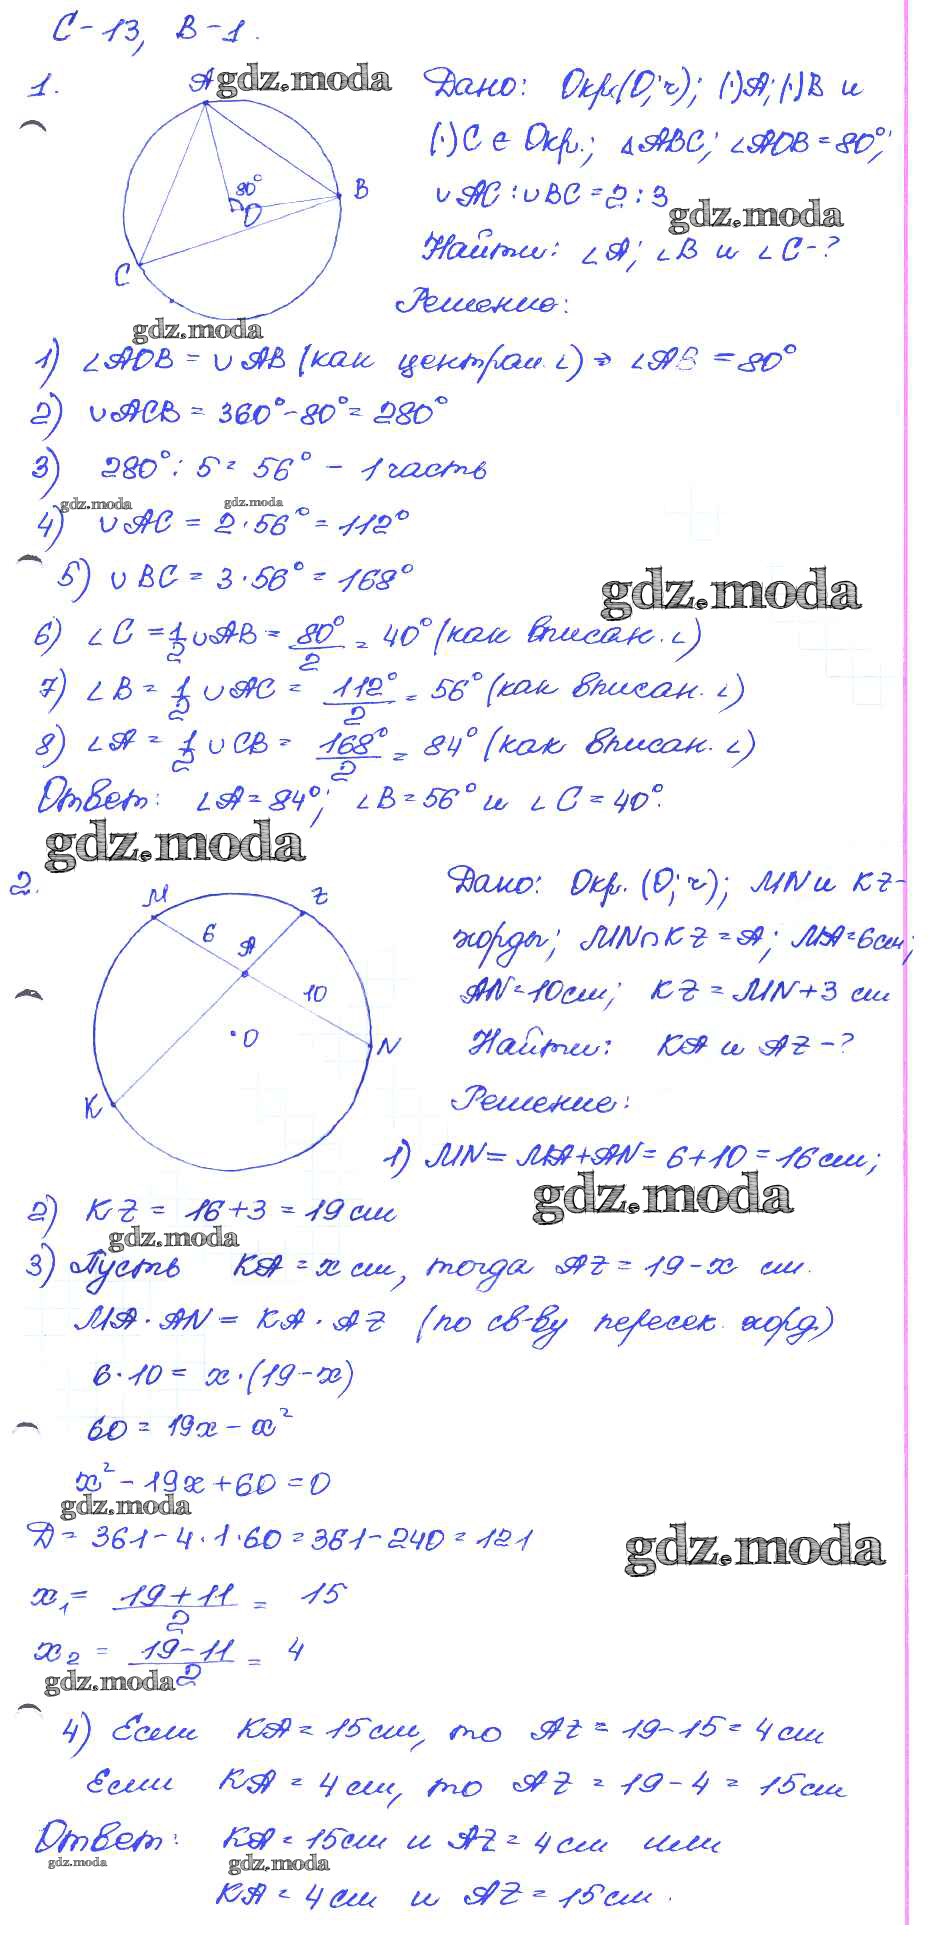 С-13, В-1.
1.
A gdz.moda
80°
O
B
C
gdz.moda
Дано: Окр.(O; r); (·)A; (·)B и
(·)C ∈ Окр.; △ABC; ∠AOB = 80°;
∪AC : ∪BC = 2 : 3
gdz.moda
Найти: ∠A; ∠B и ∠C - ?
Решение:
1) ∠AOB = ∪AB (как централ. ∠) ⇒ ∠AB = 80°
2) ∪ACB = 360° - 80° = 280°
3) 280° : 5 = 56° - 1 часть
gdz.moda gdz.moda
4) ∪AC = 2 · 56° = 112°
5) ∪BC = 3 · 56° = 168°
gdz.moda
6) ∠C = 1/2 ∪AB = 80°/2 = 40° (как вписан. ∠)
7) ∠B = 1/2 ∪AC = 112°/2 = 56° (как вписан. ∠)
8) ∠A = 1/2 ∪CB = 168°/2 = 84° (как вписан. ∠)
Ответ: ∠A = 84°; ∠B = 56° и ∠C = 40°.
gdz.moda
2.
M
Z
6
A
10
O
N
K
Дано: Окр. (O; r); MN и KZ-
хорды; MN ∩ KZ = A; MA = 6см;
AN = 10см; KZ = MN + 3 см
Найти: KA и AZ - ?
Решение:
1) MN = MA + AN = 6 + 10 = 16 см;
gdz.moda
2) KZ = 16 + 3 = 19 см
gdz.moda
3) Пусть KA = x см, тогда AZ = 19 - x см.
MA · AN = KA · AZ (по св-ву пересек. хорд.)
6 · 10 = x · (19 - x)
60 = 19x - x²
x² - 19x + 60 = 0
gdz.moda
D = 361 - 4 · 1 · 60 = 361 - 240 = 121
gdz.moda
x₁ = (19 + 11)/2 = 15
x₂ = (19 - 11)/2 = 4
gdz.moda
4) Если KA = 15 см, то AZ = 19 - 15 = 4 см
Если KA = 4 см, то AZ = 19 - 4 = 15 см
Ответ: KA = 15см и AZ = 4 см или
gdz.moda gdz.moda
KA = 4 см и AZ = 15 см.